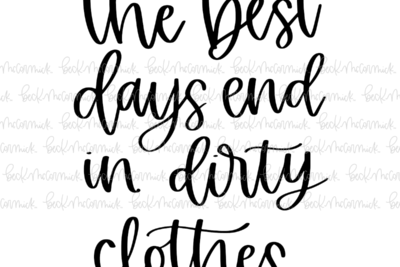 the best
days end
in dirty
clothes